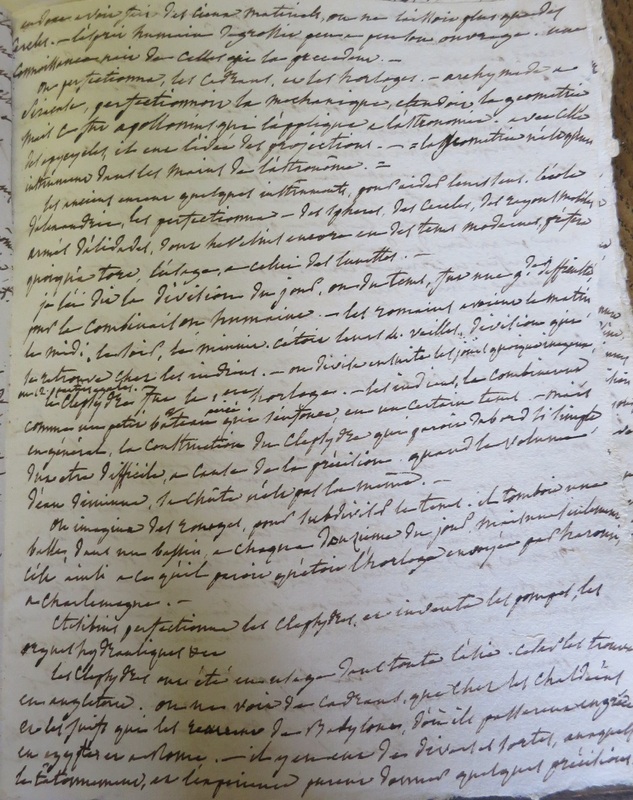 on ne laissoit plus que des
cercles. – l'esprit humain
connoissance
on perfectionna, les cadrans, et les horloges. – archymede a
siracuse, perfectionnoit la mechanique, etendoit la geometrie
mais ce fut apollonius qui l'applique a l'astronomie, avec
les epycycles, il eut l'idée des projections. – = la geometrie
instrument dans les mains de l'astronome. =
les anciens eurent quelques instruments, pour aider leurs sens. l'école
d'alexandrie, les perfectionna – des spheres, des cercles, des
armés d'alidades, dont encore en des tems modernes,
l'usage, a celui des lunettes. –
j'ai dit la division du jour, ou du tems, fut une gde difficulté
pour la combinaison humaine. – les romains avoient le matin
le midi, le soir, la division qui
se retrouve chez les indiens. – on divisa ensuite les jours
le clepsydre fut le 1er horloge. – les indiens, le combinerent
comme un petit bateau percé qui s'enfonce en un certain tems. – mais
en general, la construction du clepsydre qui paroit d'abord si simple
dut etre difficile, a cause de la précision. quand le volume
d'eau diminue, la chûte n'est pas la même. –
on imagina des rouages, pour subdiviser le tems. il tomboit une
balle, dans un bassin, a chaque douzieme du jour.
c'est ainsi a ce qu'il paroit qu'etoit l'horloge envoyée par haroun,
a charlemagne. –
Ctesibius perfectionna les clepsydres, et inventa les pompes, les
orgues hydrauliques &c
les clepsydres ont été en usage dans toute l'asie. cesar les trouva
en angleterre. on ne voit de cadrans, que chez les chaldéens
et les juifs qui les de Babylone, d'où ils passerent en grèce
en egypte et a Rome. – il y en eut de diverses sortes, auxquels
le tâtonnement, et l'experience purent donner quelques précisions